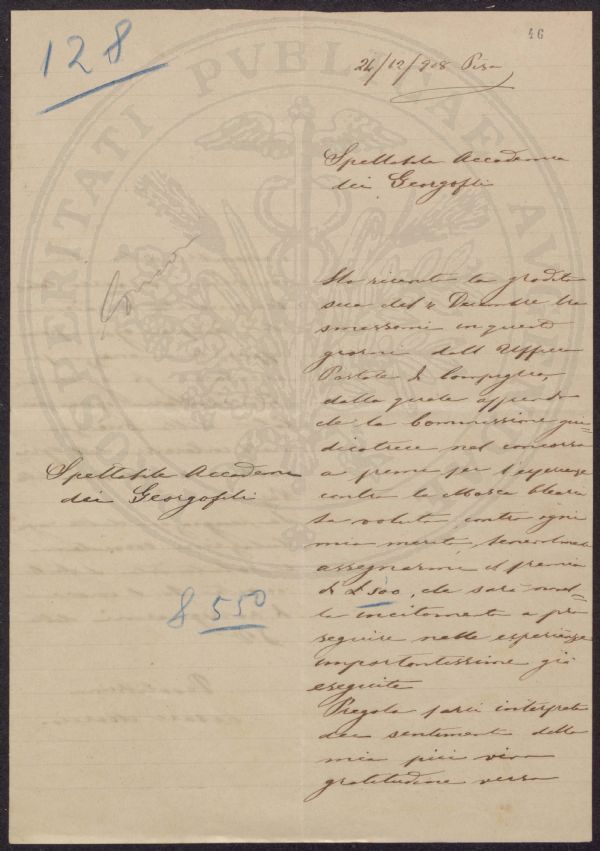 128
46
24/12/908 Pisa
Spettabile Accademia
dei Georgofili
Ho ricevuto la gradita
sua del 4 Decembre tra
smessami in questi
giorni dall Ufficio
Postale di Campiglia,
dalla quale apprendo
che la Commissione giu-
dicatrice nel concorso
a premi per l'esperienze
contro la Mosca Olearia
ha voluto, contro ogni
mio merito,
assegnarmi il premio
di £ 500, che sarà novel-
lo incitamento a pro
seguire nelle esperienze
importantissime già
eseguite
Pregola farsi interprete
dei sentimenti della
mia più viva
gratitudine verso
Spettabile Accademia
dei Georgofili
8 550
PROSPERITATI PVBLICAE AV